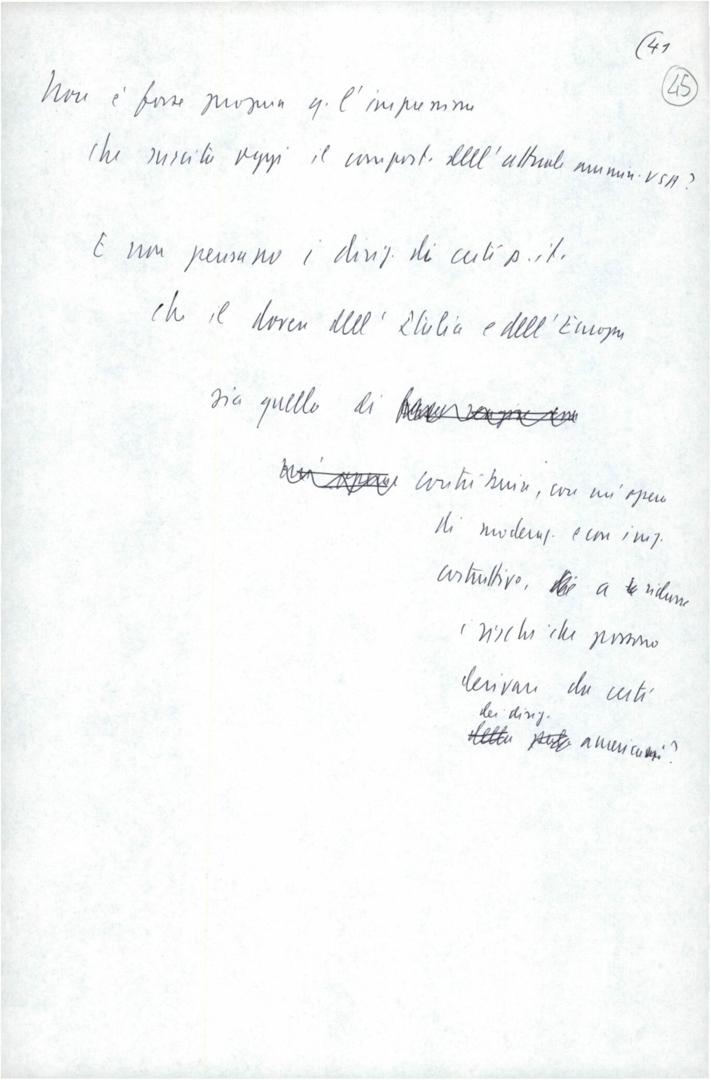 (41
45
Non è forse propria q. l'impressione
che suscita oggi il comport. dell'attuale ammin. USA?
E non pensano i dirig. di certi p. it.
che il dovere dell'Italia e dell'Europa
sia quello di
contribuire, con un'opera
di moderaz. e con imp.
costruttivo, a ridurre
i rischi che possono
derivare da certi
dei dirig.
americani?